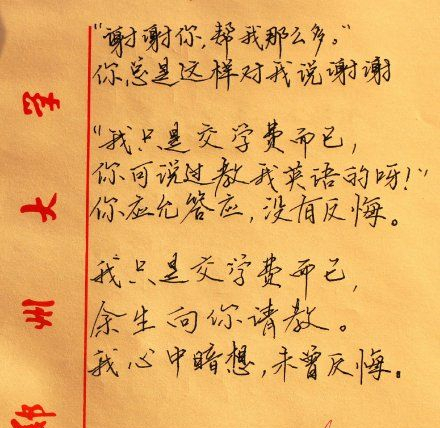 “谢谢你，帮我那么多。”
你总是这样对我说谢谢
“我只是交学费而已，
你可说过教我英语的呀！”
你应允答应，没有反悔。
我只是交学费而已，
余生向你请教。
我心中暗想，未曾反悔。
郑州大学